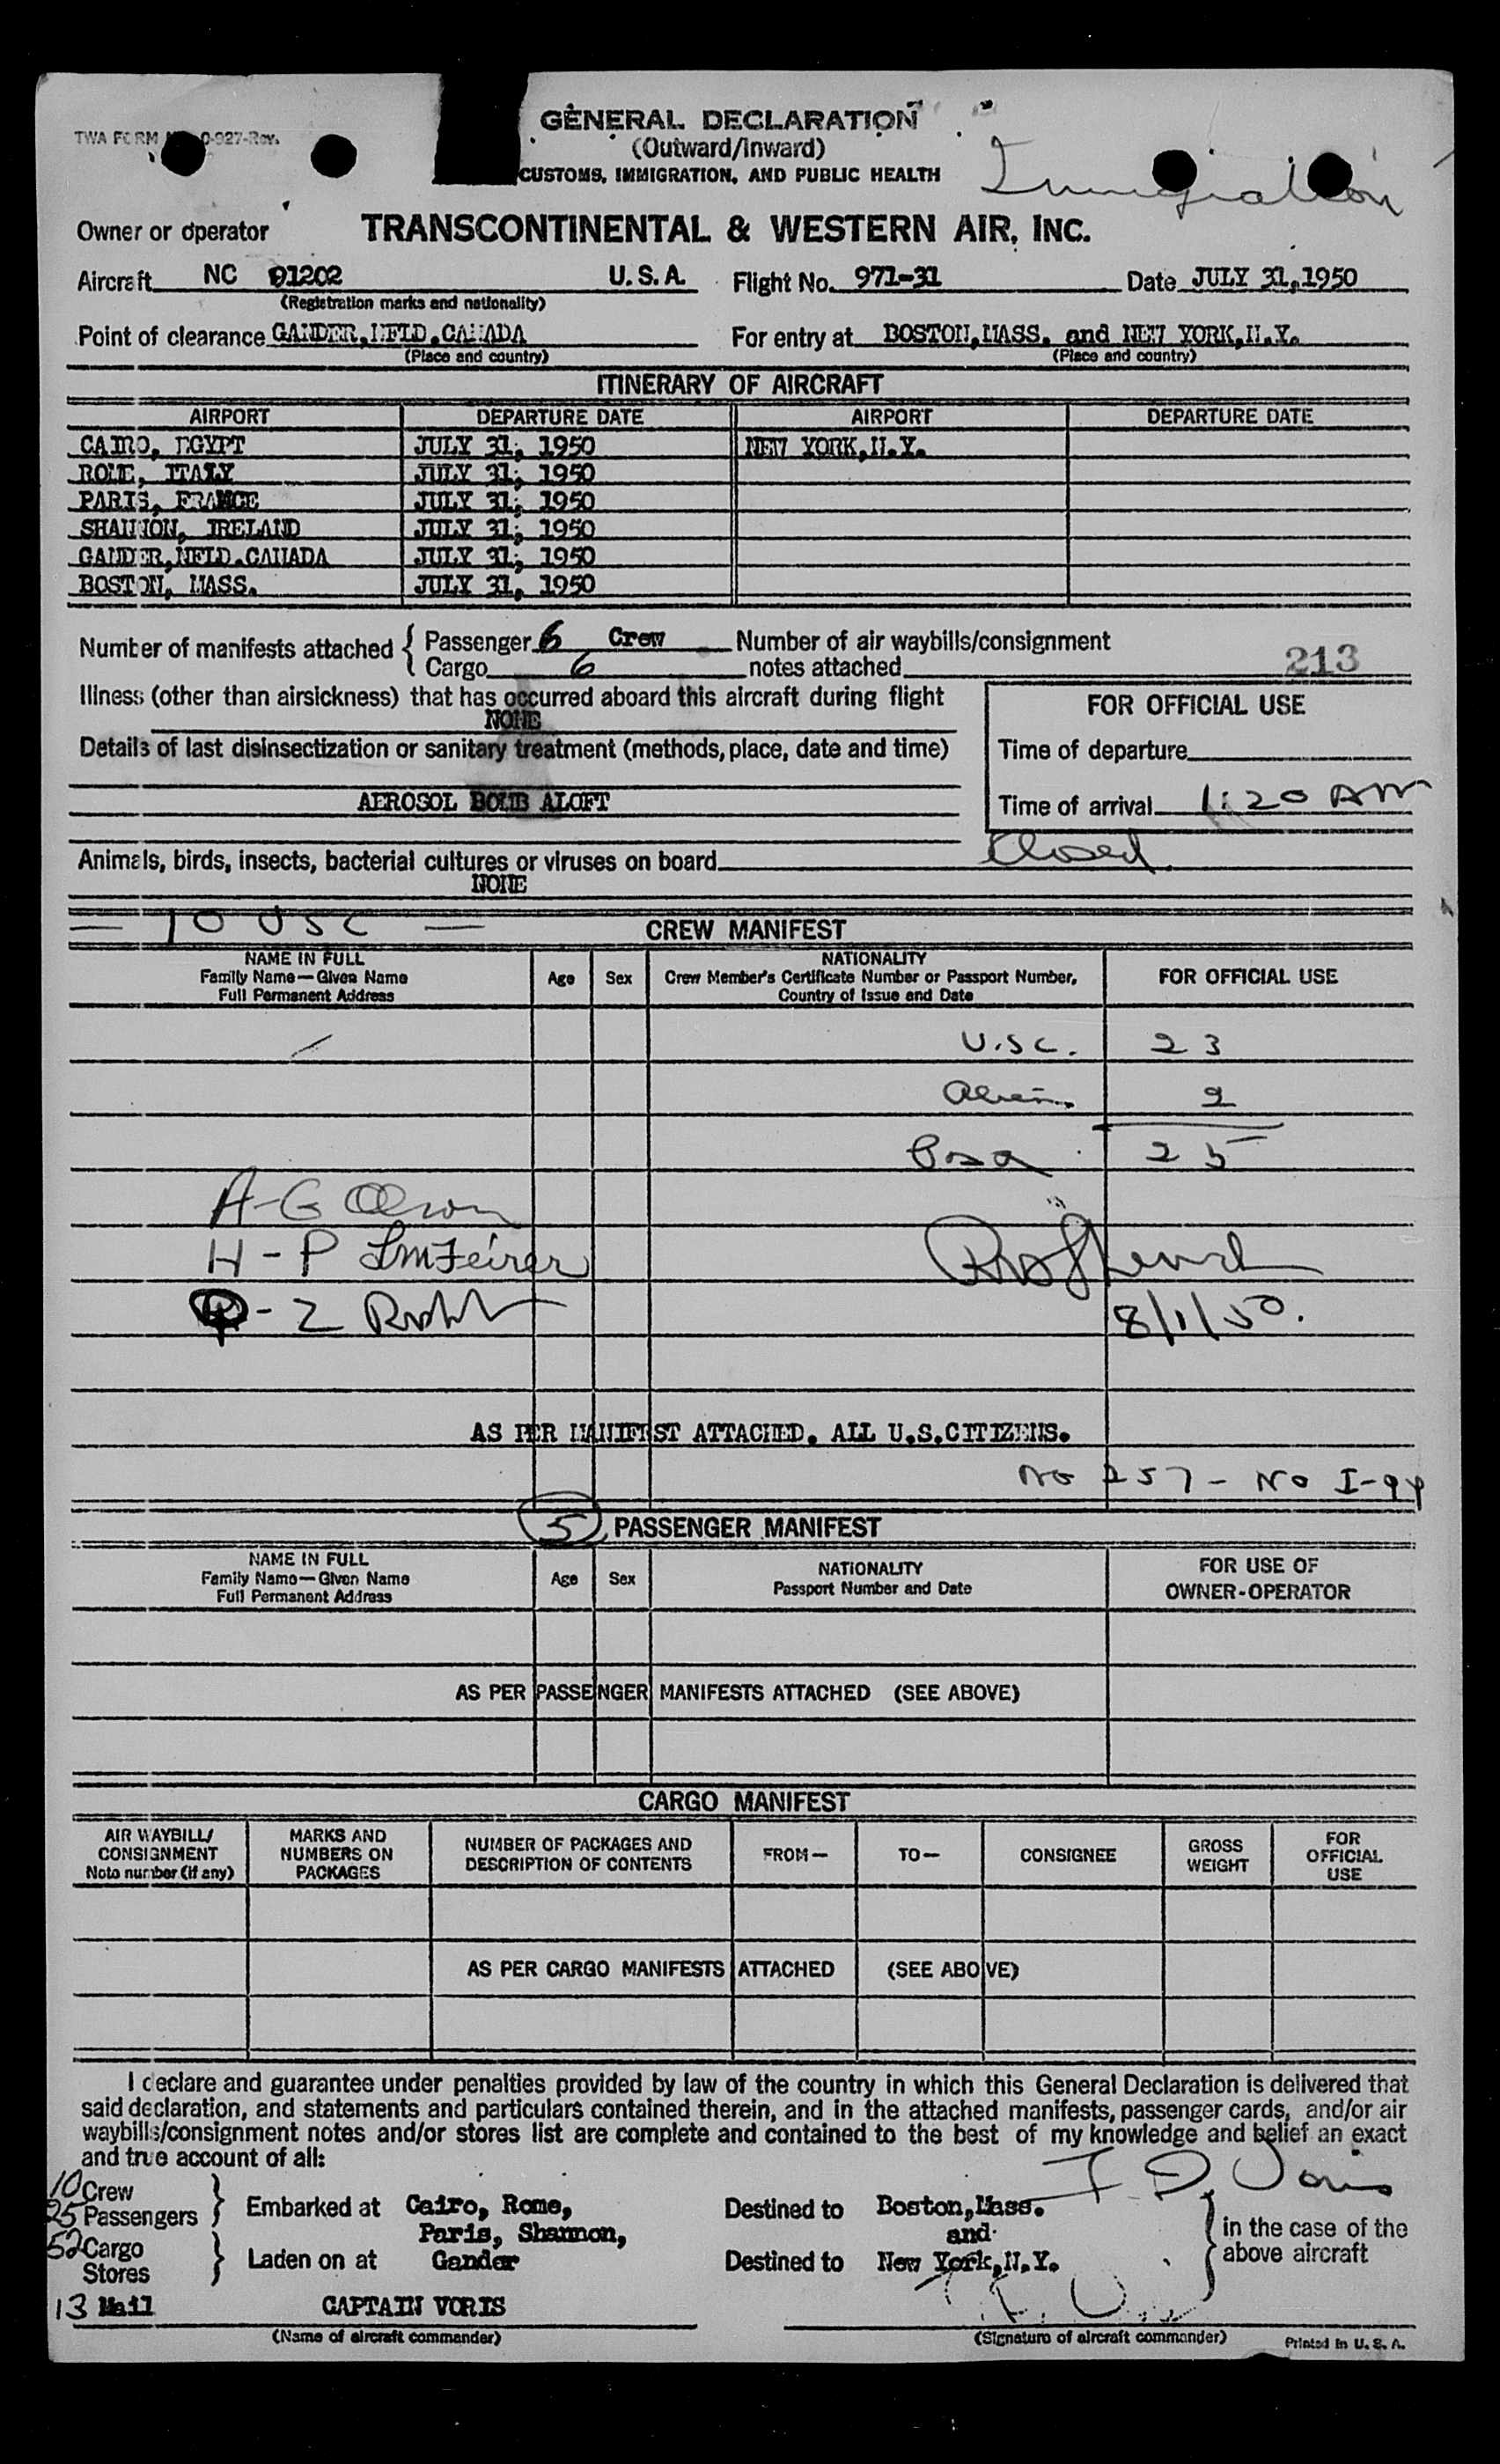 GENERAL DECLARATION
(Outward/inward)
CUSTOMS, IMMIGRATION, AND PUBLIC HEALTH
TWA FORM 0-927-Rev.
Immigration
Owner or operator TRANSCONTINENTAL & WESTERN AIR, INC.
Aircraft NC 91202 U.S.A. Flight No. 971-31 Date JULY 31, 1950
(Registration marks and nationality)
Point of clearance GANDER, NFLD. CANADA For entry at BOSTON, MASS. and NEW YORK, N.Y.
(Place and country) (Place and country)
ITINERARY OF AIRCRAFT
AIRPORT DEPARTURE DATE AIRPORT DEPARTURE DATE
CAIRO, EGYPT JULY 31, 1950 NEW YORK, N.Y.
ROME, ITALY JULY 31, 1950
PARIS, FRANCE JULY 31, 1950
SHANNON, IRELAND JULY 31, 1950
GANDER, NFLD. CANADA JULY 31, 1950
BOSTON, MASS. JULY 31, 1950
Number of manifests attached { Passenger 6 Crew Number of air waybills/consignment
Cargo 6 notes attached 213
Illness (other than airsickness) that has occurred aboard this aircraft during flight
NONE
FOR OFFICIAL USE
Details of last disinsectization or sanitary treatment (methods, place, date and time)
Time of departure
AEROSOL BOMB ALOFT
Time of arrival 1:20 AM
Closed
Animals, birds, insects, bacterial cultures or viruses on board
NONE
— 10 USC —
CREW MANIFEST
NAME IN FULL
Family Name—Given Name
Full Permanent Address
Age Sex
NATIONALITY
Crew Member's Certificate Number or Passport Number,
Country of Issue and Date
FOR OFFICIAL USE
U.S.C. 23
Alien 2
25
A-G Olson
H-P
- Z
8/1/50.
AS PER MANIFEST ATTACHED. ALL U.S. CITIZENS.
No 257 - No I-94
5 PASSENGER MANIFEST
NAME IN FULL
Family Name—Given Name
Full Permanent Address
Age Sex
NATIONALITY
Passport Number and Date
FOR USE OF
OWNER-OPERATOR
AS PER PASSENGER MANIFESTS ATTACHED (SEE ABOVE)
CARGO MANIFEST
AIR WAYBILL/
CONSIGNMENT
Note number (if any)
MARKS AND
NUMBERS ON
PACKAGES
NUMBER OF PACKAGES AND
DESCRIPTION OF CONTENTS
FROM— TO— CONSIGNEE
GROSS
WEIGHT
FOR
OFFICIAL
USE
AS PER CARGO MANIFESTS ATTACHED (SEE ABOVE)
I declare and guarantee under penalties provided by law of the country in which this General Declaration is delivered that
said declaration, and statements and particulars contained therein, and in the attached manifests, passenger cards, and/or air
waybills/consignment notes and/or stores list are complete and contained to the best of my knowledge and belief an exact
and true account of all:
10 Crew
25 Passengers } Embarked at Cairo, Rome, Destined to Boston, Mass.
Paris, Shannon, and
52 Cargo
Stores } Laden on at Gander Destined to New York, N.Y.
in the case of the
above aircraft
13 Mail CAPTAIN VORIS
(Name of aircraft commander) (Signature of aircraft commander) Printed in U. S. A.